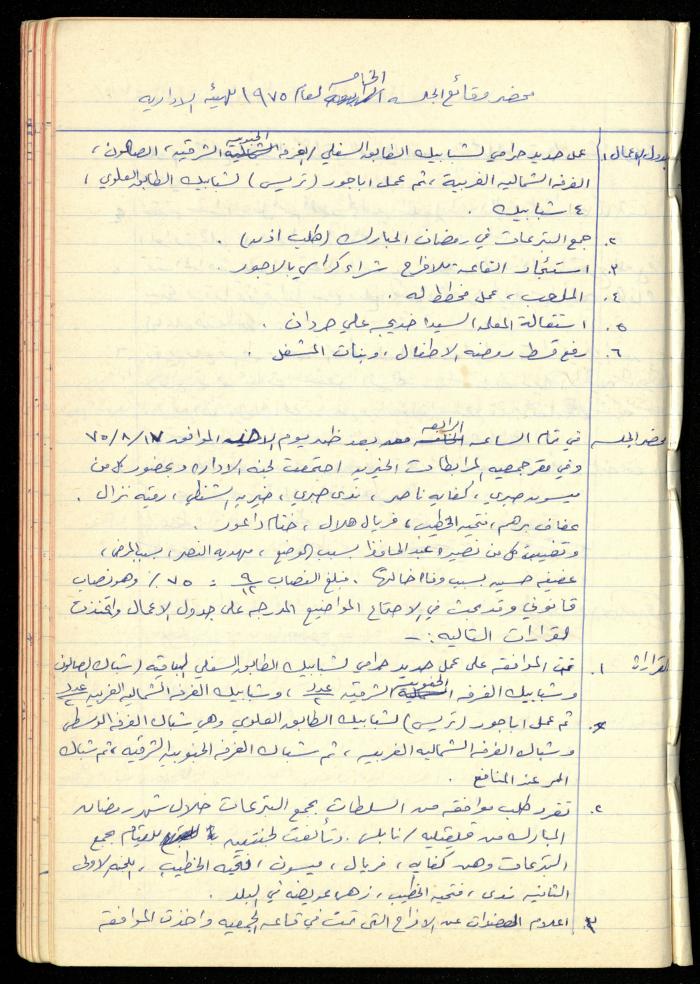 محضر وقائع الجلسه الخامسه لعام ١٩٧٥ للهيئه الاداريه
جدول الاعمال ١. عمل حديد حرامي لشبابيك الطابق السفلي / الغرفه الجنوبيه الشرقيه، الصالون،
الغرفه الشماليه الغربية، ثم عمل اباجور (تريس) لشبابيك الطابق العلوي،
٤ شبابيك.
٢. جمع التبرعات في رمضان المبارك (طلب اذن).
٣. استئجار القاعه للافراح شراء كراسي بالاجور.
٤. الملعب، عمل مخطط له.
٥. استقالة المعلمه السيده خديجه علي
٦. رفع قسط روضه الاطفال، وبنات المشغل.
محضر الجلسه في تمام الساعه الرابعه بعد ظهر يوم الاحد الموافق ٧٥/٨/١٧
وفي مقر جمعيه المرابطات الخيريه اجتمعت لجنه الاداره وبحضور كل من
ميسون صبري، كفايه ناصر، ندى صبري، خيريه الشنطي، رقيه نزال.
عفاف برهم، فتحيه الخطيب، فريال هلال، ختام داعور.
وتغيبت كل من نصيره عبد الحافظ بسبب الوضع، مهديه النصر، بسبب المرض،
عفيفه حسين بسبب وفاة خالتها. فبلغ النصاب ٩/١٢ = ٧٥٪ وهو نصاب
قانوني وقد بحث في الاجتماع المواضيع المدرجه على جدول الاعمال واتخذت
القرارات التاليه:-
القرارات ١. تمت الموافقه على عمل حديد حرامي لشبابيك الطابق السفلي الباقيه (شباك الصالون
وشبابيك الغرفه الجنوبيه الشرقيه عدد ٢، وشبابيك الغرفه الشماليه الغربيه عدد ٢
ثم عمل اباجور (تريس) لشبابيك الطابق العلوي وهي شباك الغرفه الوسطى
وشباك الغرفه الشماليه الغربيه، ثم شباك الغرفه الجنوبيه الشرقيه، ثم شباك
الممر عند المنافع.
٢. تقرر طلب موافقه من السلطات بجمع التبرعات خلال شهر رمضان
المبارك من قلقيليه / نابلس. وتألفت لجنتين للقيام بجمع
التبرعات وهن كفايه، فريال، ميسون، فتحيه الخطيب، اللجنه الاولى
الثانيه ندى، فتحيه الخطيب، زهره في البلد.
٣. اعلام العضوات عن الافراح التي تمت في قاعه الجمعيه واخذت الموافقه